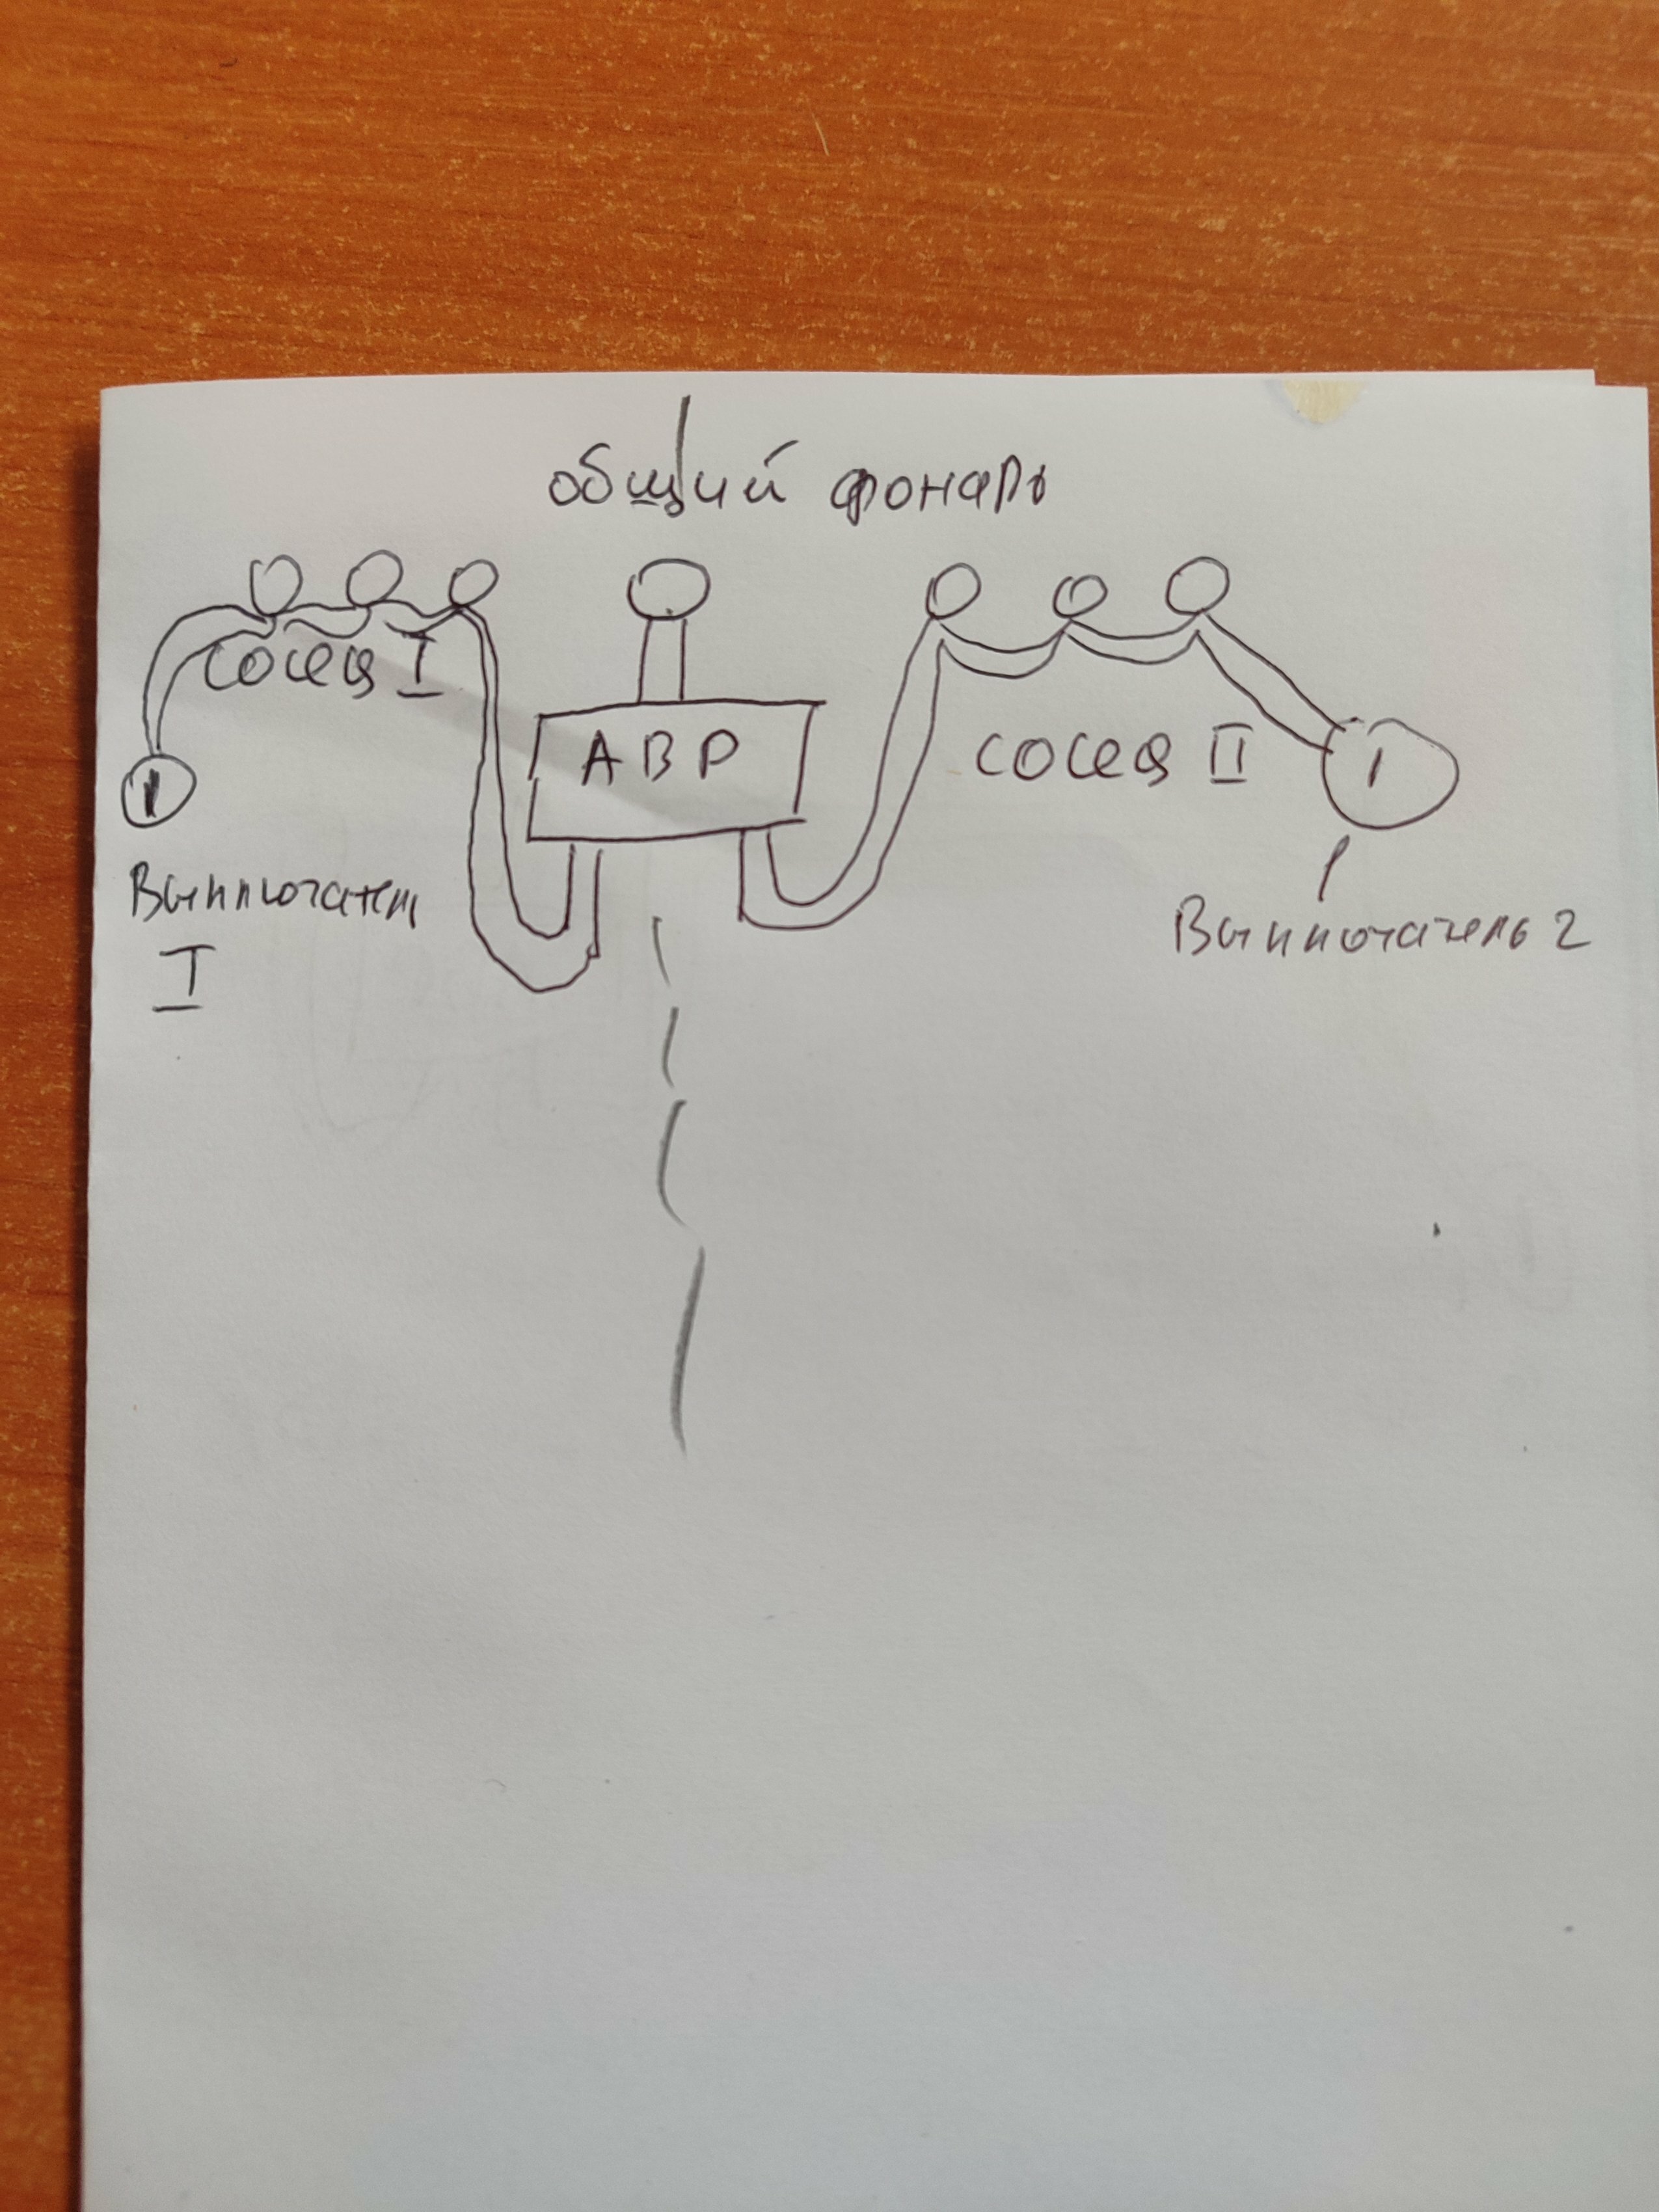 общий фонарь
сосед I
АВР
сосед II
Выключатель
I
Выключатель 2